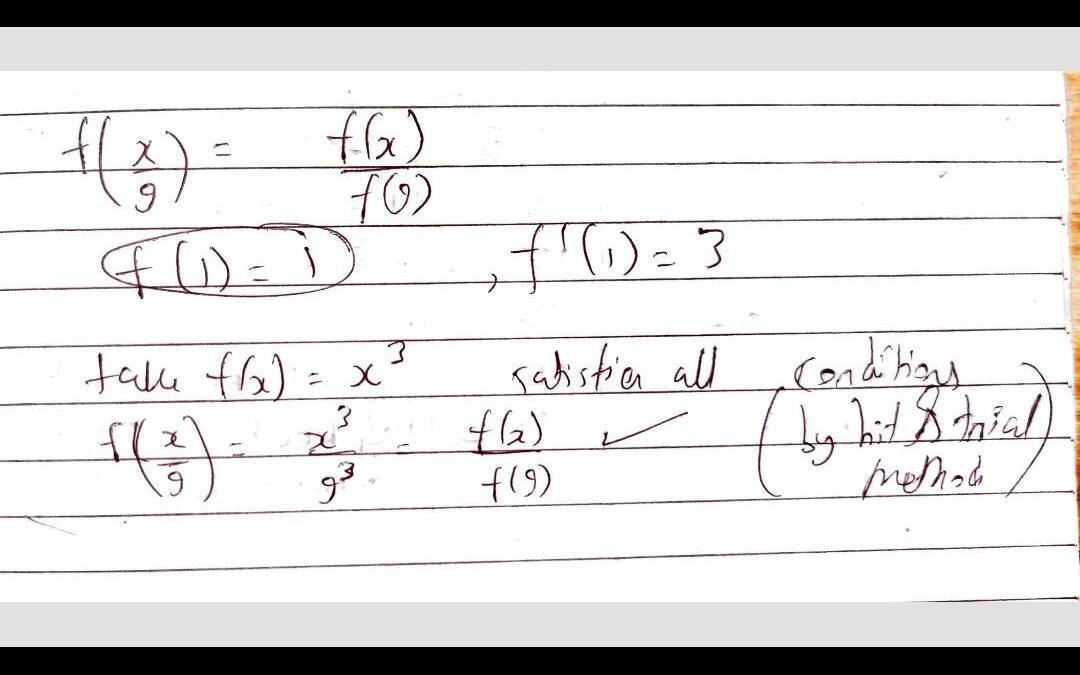 f(x/9) = f(x)/f(9)
f(1) = 1 , f'(1) = 3
take f(x) = x³ satisfies all conditions
f(x/9) = x³/9³ = f(x)/f(9) ✓ (by hit & trial method)